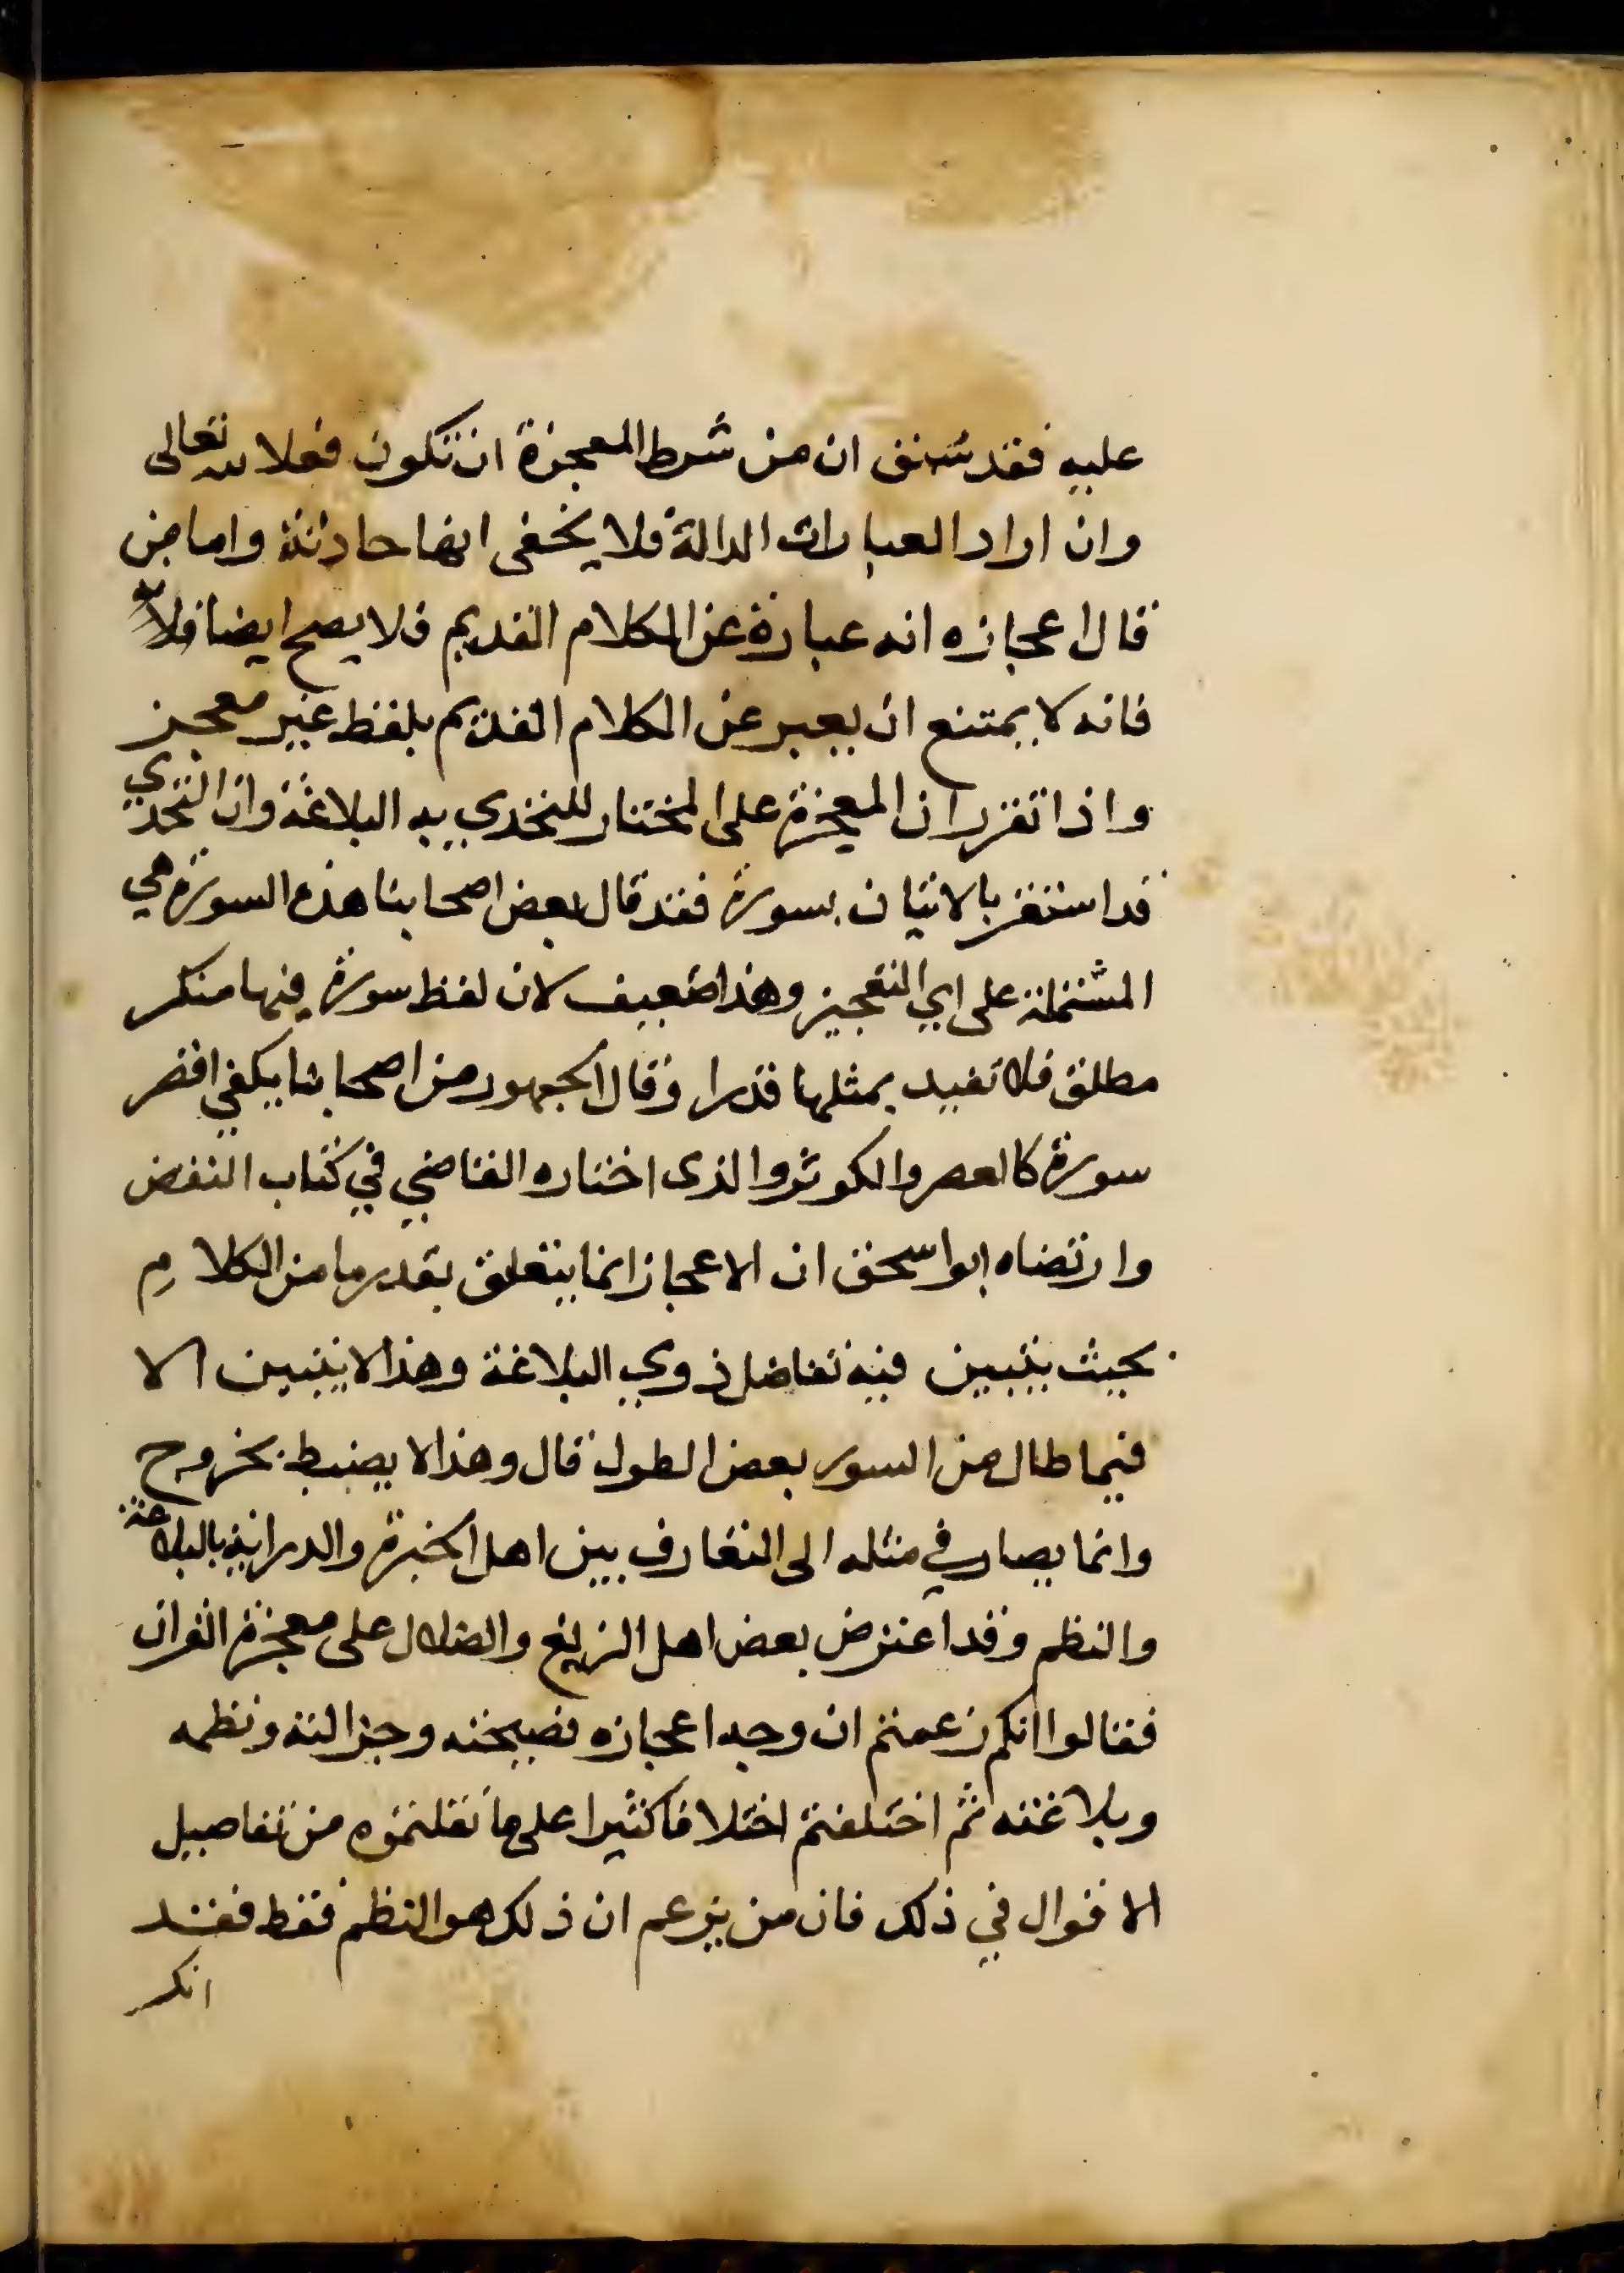 عليه فقد سبق ان من شرط المعجزة ان تكون فعلا لله تعالى
وان اراد العبارات الدالة فلا يخفى انها حادثة واما من
قال اعجازه انه عبارة عن الكلام القديم فلا يصح ايضا
فانه لا يمتنع ان يعبر عن الكلام القديم بلفظ غير معجز
واذا تقرر ان المعجزة على المختار للتحدي به البلاغة وان التحدي
قد استقر بالاتيان بسورة فقد قال بعض اصحابنا هذه السورة هي
المشتملة على اي التعجيز وهذا ضعيف لان لفظ سورة فيها منكر
مطلق فلا تفيد بمثلها قدرا وقال الجمهور من اصحابنا يكفي اقصر
سورة كالعصر والكوثر والذى اختاره القاضي في كتاب النقض
وارتضاه ابو اسحق ان الاعجاز انما يتعلق بقدر ما من الكلام
بحيث يتبين فيه تفاضل ذوي البلاغة وهذا لا يتبين الا
فيما طال من السور بعض الطول قال وهذا لا يضبط بخروج
وانما يصار في مثله الى التعارف بين اهل الخبرة والدراية بالبلاغة
والنظم وقد اعترض بعض اهل الزيغ والضلال على معجزة القران
فقالوا انكم زعمتم ان وجه اعجازه فصيحته وجزالته ونظمه
وبلاغته ثم اختلفتم اختلافا كثيرا على ما نقلتموه من تفاصيل
الاقوال في ذلك فان من يزعم ان ذلك هو النظم فقط فقد
انكر